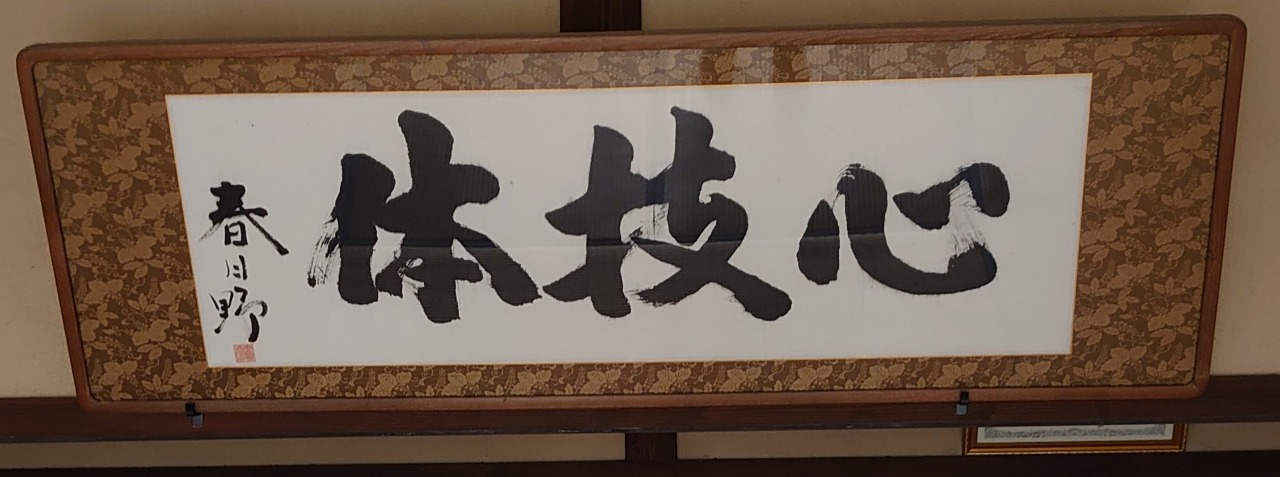 心技体
春日野